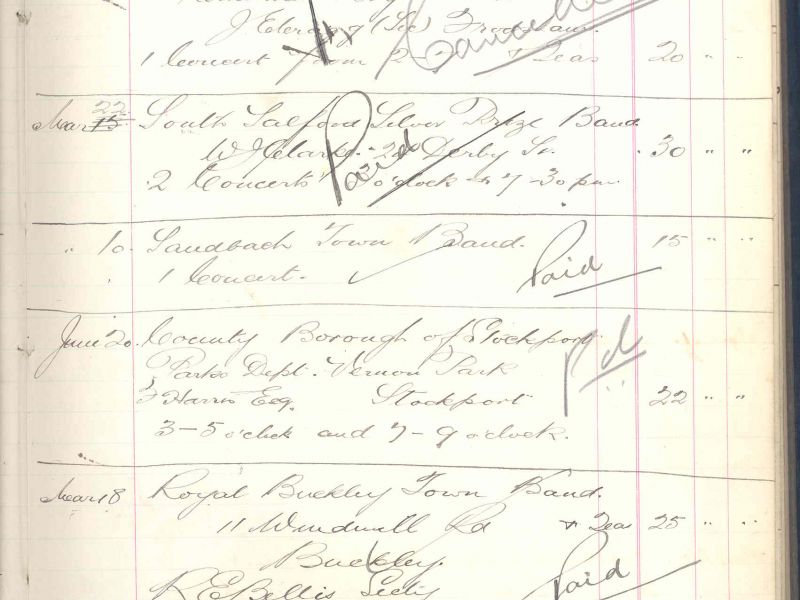 J. (Sec) Frodsham.
1 Concert from 2- + Teas 20 " "
Cancelled
Mar 22 15 South Salford Silver Prize Band.
W J Clarke. 2 Derby St. 30 " "
2 Concerts o'clock + 7-30 pm.
Paid
" 10. Sandbach Town Band. 15 " "
1 Concert. Paid
June 20. County Borough of Stockport
Parks Dept. Vernon Park Pd
Harris Esq. Stockport 22 " "
3-5 o'clock and 7-9 o'clock.
Mar 18 Royal Buckley Town Band.
11 Windmill Rd + Teas 25 " "
Buckley.
R E Bellis Paid